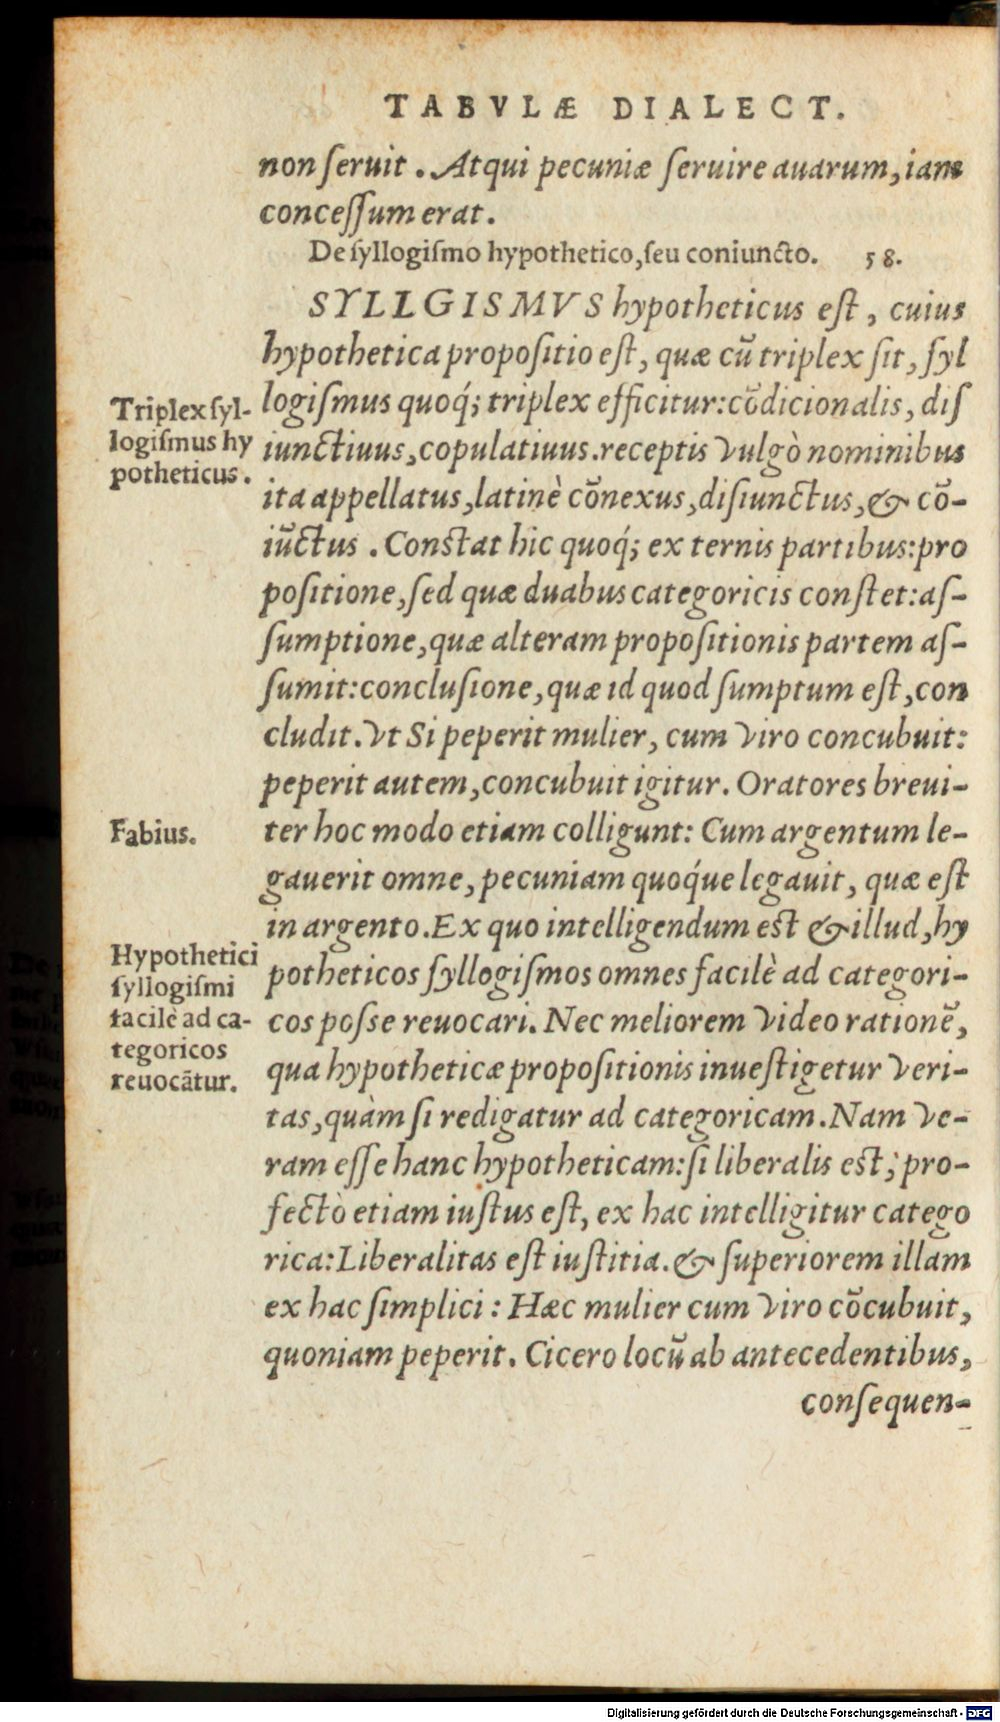 TABVLÆ DIALECT.
non ſeruit. Atqui pecuniæ ſeruire auarum, iam
conceſſum erat.
De ſyllogiſmo hypothetico, ſeu coniuncto. 58.
SYLLGISMVS hypotheticus eſt, cuius
hypothetica propoſitio eſt, quæ cū triplex ſit, ſyl
logiſmus quoq́; triplex efficitur: cōdicionalis, diſ
iunctiuus, copulatiuus. receptis vulgò nominibus
ita appellatus, latinè cōnexus, diſiunctus, & cō-
iūctus. Conſtat hic quoq́; ex ternis partibus: pro
poſitione, ſed quæ duabus categoricis conſtet: aſ-
ſumptione, quæ alteram propoſitionis partem aſ-
ſumit: concluſione, quæ id quod ſumptum eſt, con
cludit. Vt Si peperit mulier, cum viro concubuit:
peperit autem, concubuit igitur. Oratores breui-
ter hoc modo etiam colligunt: Cum argentum le-
gauerit omne, pecuniam quoq́ue legauit, quæ eſt
in argento. Ex quo intelligendum eſt & illud, hy
potheticos ſyllogiſmos omnes facilè ad categori-
cos poſse reuocari. Nec meliorem video rationē,
qua hypotheticæ propoſitionis inueſtigetur veri-
tas, quàm ſi redigatur ad categoricam. Nam ve-
ram eſſe hanc hypotheticam: ſi liberalis eſt; pro-
fectò etiam iuſtus eſt, ex hac intelligitur catego
rica: Liberalitas eſt iuſtitia. & ſuperiorem illam
ex hac ſimplici: Hæc mulier cum viro cōcubuit,
quoniam peperit. Cicero locū ab antecedentibus,
conſequen-
Triplex ſyl-
logiſmus hy
potheticus.
Fabius.
Hypothetici
ſyllogiſmi
facilè ad ca-
tegoricos
reuocātur.
Digitalisierung gefördert durch die Deutsche Forschungsgemeinschaft - DFG